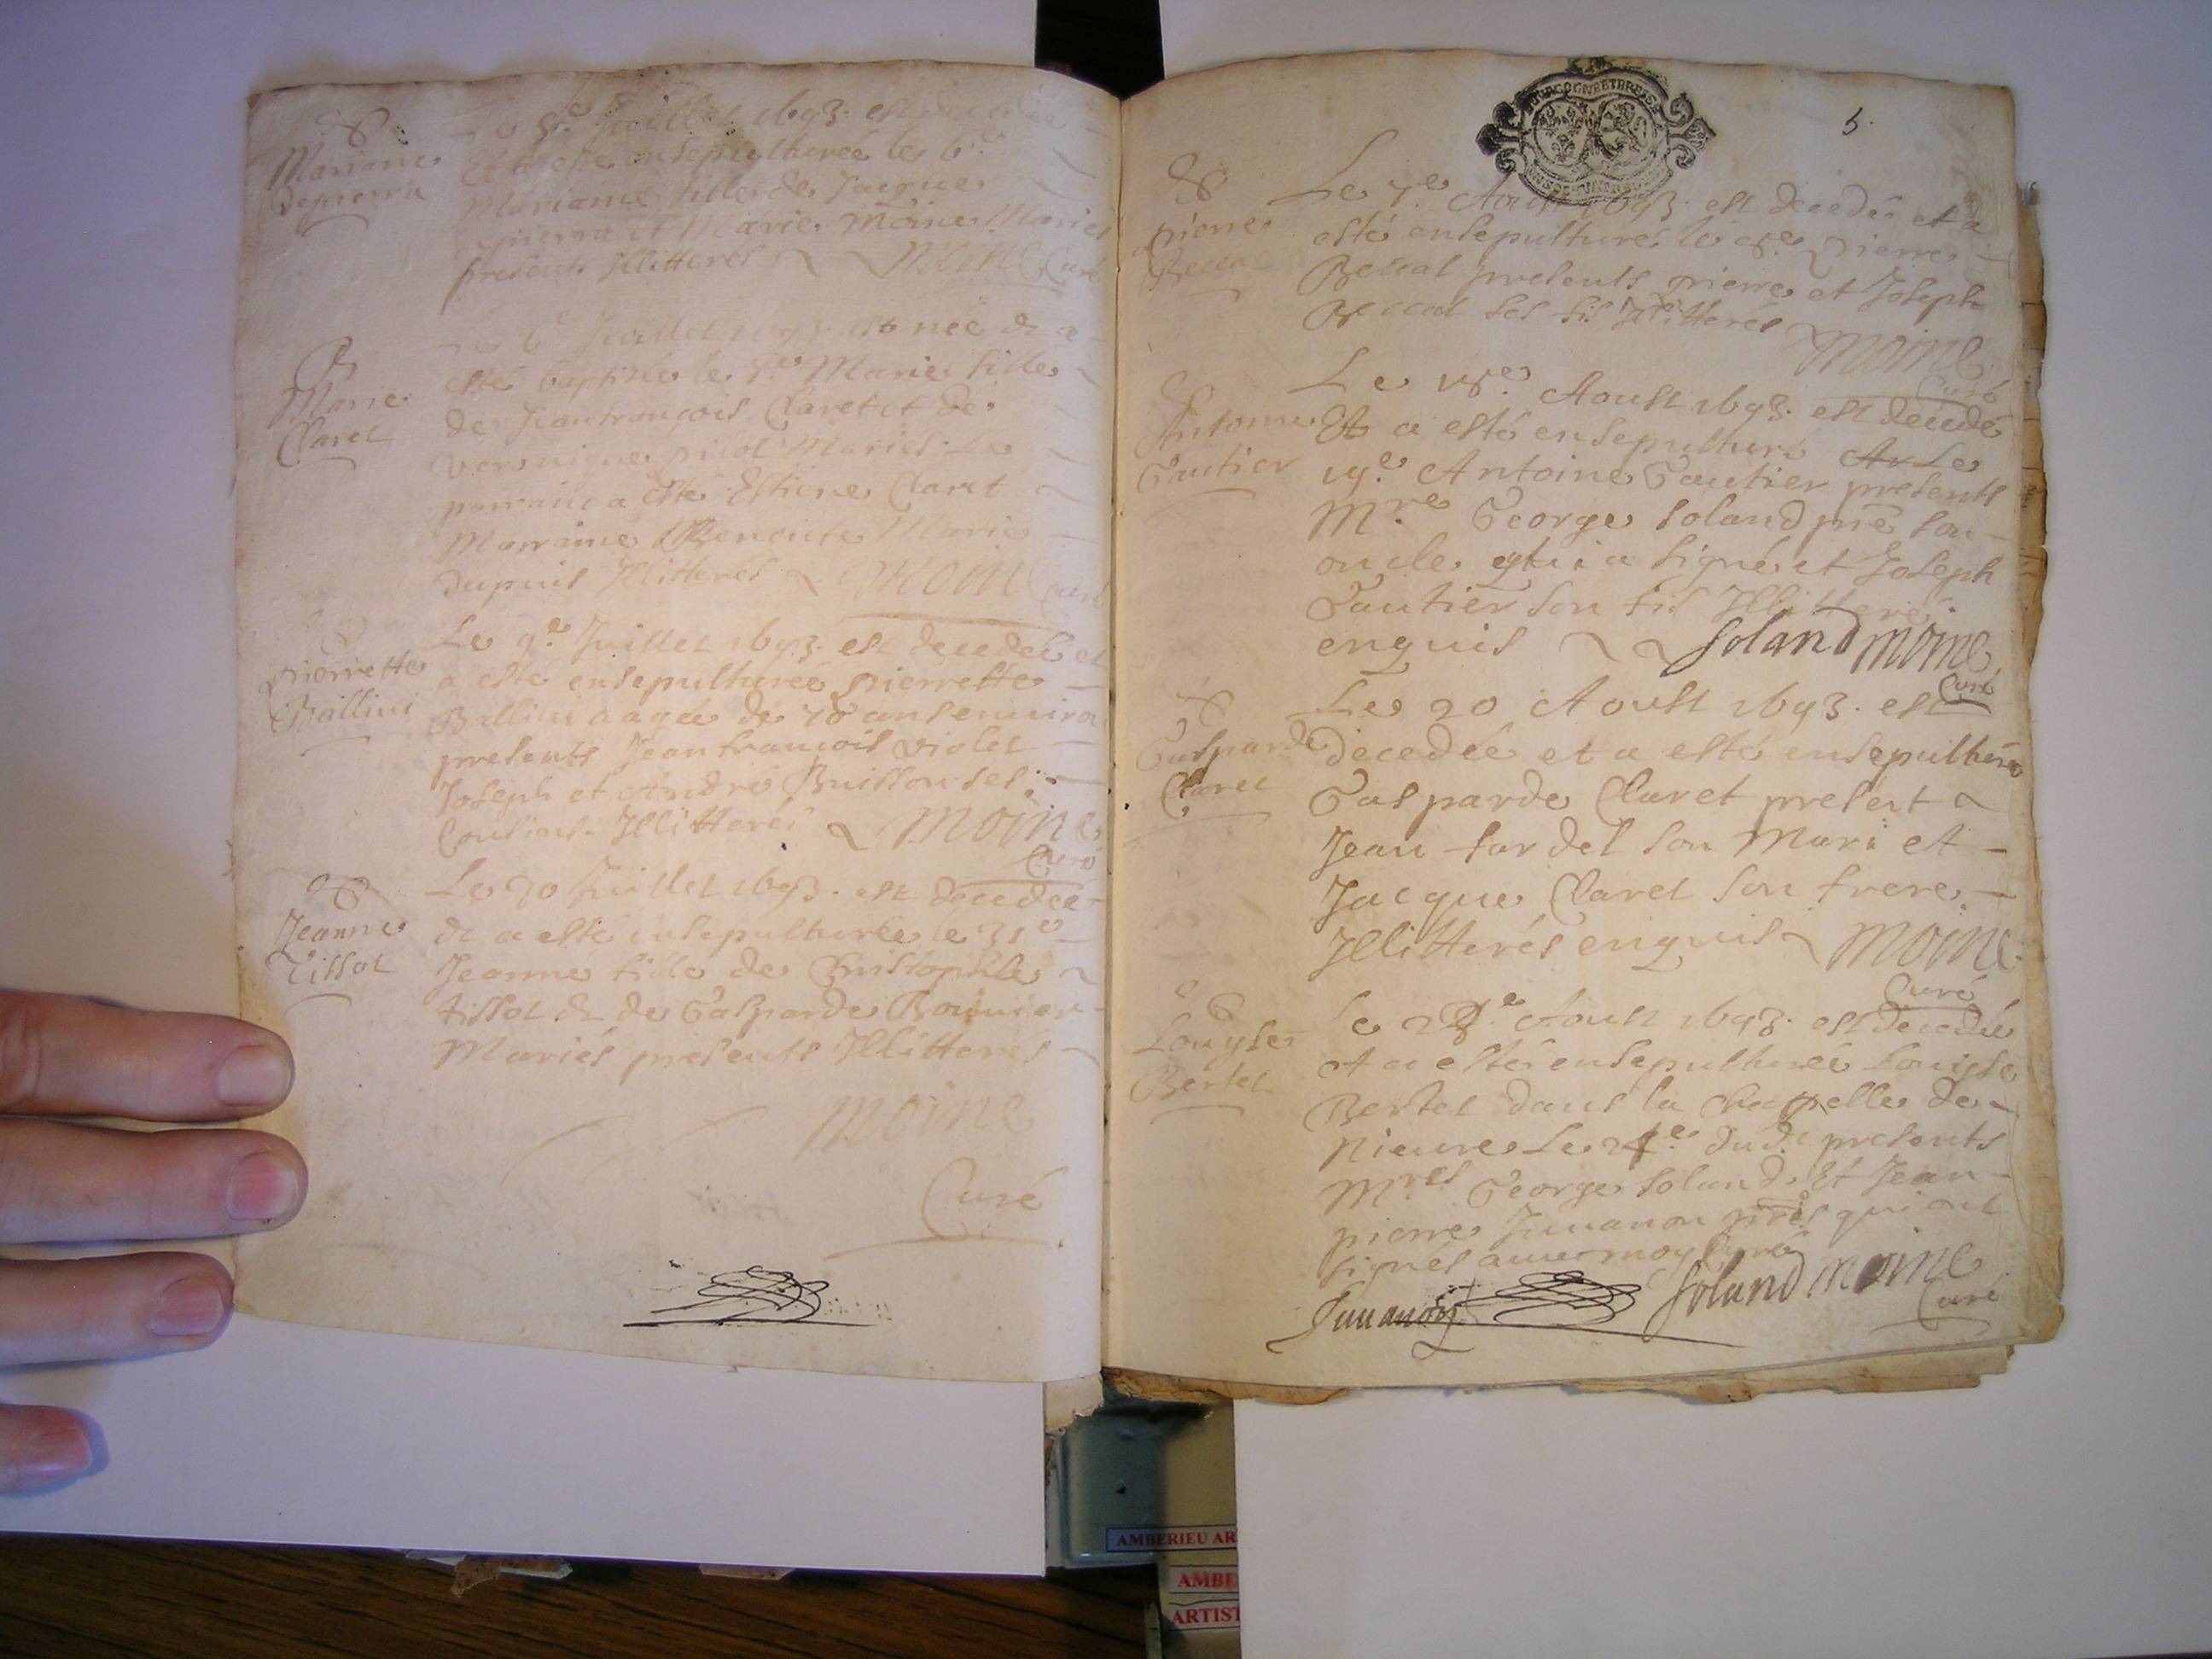 S
Mariane
Depierra
Le 5e Juillet 1693. est decedée
Et a esté ensepulturée le 6e
Mariane fille de Jacque
Depierra et Marie Moine Mariés
presents Illitterés Moine Curé
B
Marie
Claret
Le 6e Juillet 1693. est née & a
esté baptisée le 7e Marie fille
de Jeanfrançois Claret et de
veronique picol Mariés. Le
parrain a esté Estiene Claret
Marraine Benoite Marie
dupuis Illitterés Moine Curé
S
pierrette
Balliu
Le 9e Juillet 1693. est decedée et
a esté ensepulturée pierrette
Balliu aagée de 70 ans environ
presents Jean françois violet
Joseph et André Buisson ses
Cousins. Illitterés Moine
Curé
S
Jeanne
Tissot
Le 30 Juillet 1693. est decedée
& a esté ensepulturée le 31e
Jeanne fille de Christophle
tissot & de Gasparde Bouvier
Mariés presents Illitterés
Moine
Curé
5.
S
pierre
Beccat
Le 7e Aoust 1693. est decedé et a
esté ensepulturé le 8e pierre
Beccat presents pierre et Joseph
Beccat ses fils Illitterés
Moine
Curé
S
Antoine
Gautier
Le 18e Aoust 1693. est decedé
Et a esté ensepulturé Le
19e Antoine Gautier presents
Mre George Soland pre son
oncle qui a signé et Joseph
Gautier son fils Illitteré
enquis Soland Moine
Curé
S
Gasparde
Claret
Le 20 Aoust 1693. est
decedée et a esté ensepulturée
Gasparde Claret present
Jean fardel son Mari et
Jacque Claret son frere
Illitterés enquis Moine
Curé
S
Louyse
Bertet
Le 23e Aoust 1693. est decedée
et a esté ensepulturée Louyse
Bertet dans la Chappelle de
Nieure Le 24e dud. presents
Mres George Soland Et Jean
pierre Juuanon pres qui ont
signés avec moy Curé
Juuanon Soland Moine
Curé
AMBERIEU AR
AMBE
ARTIST